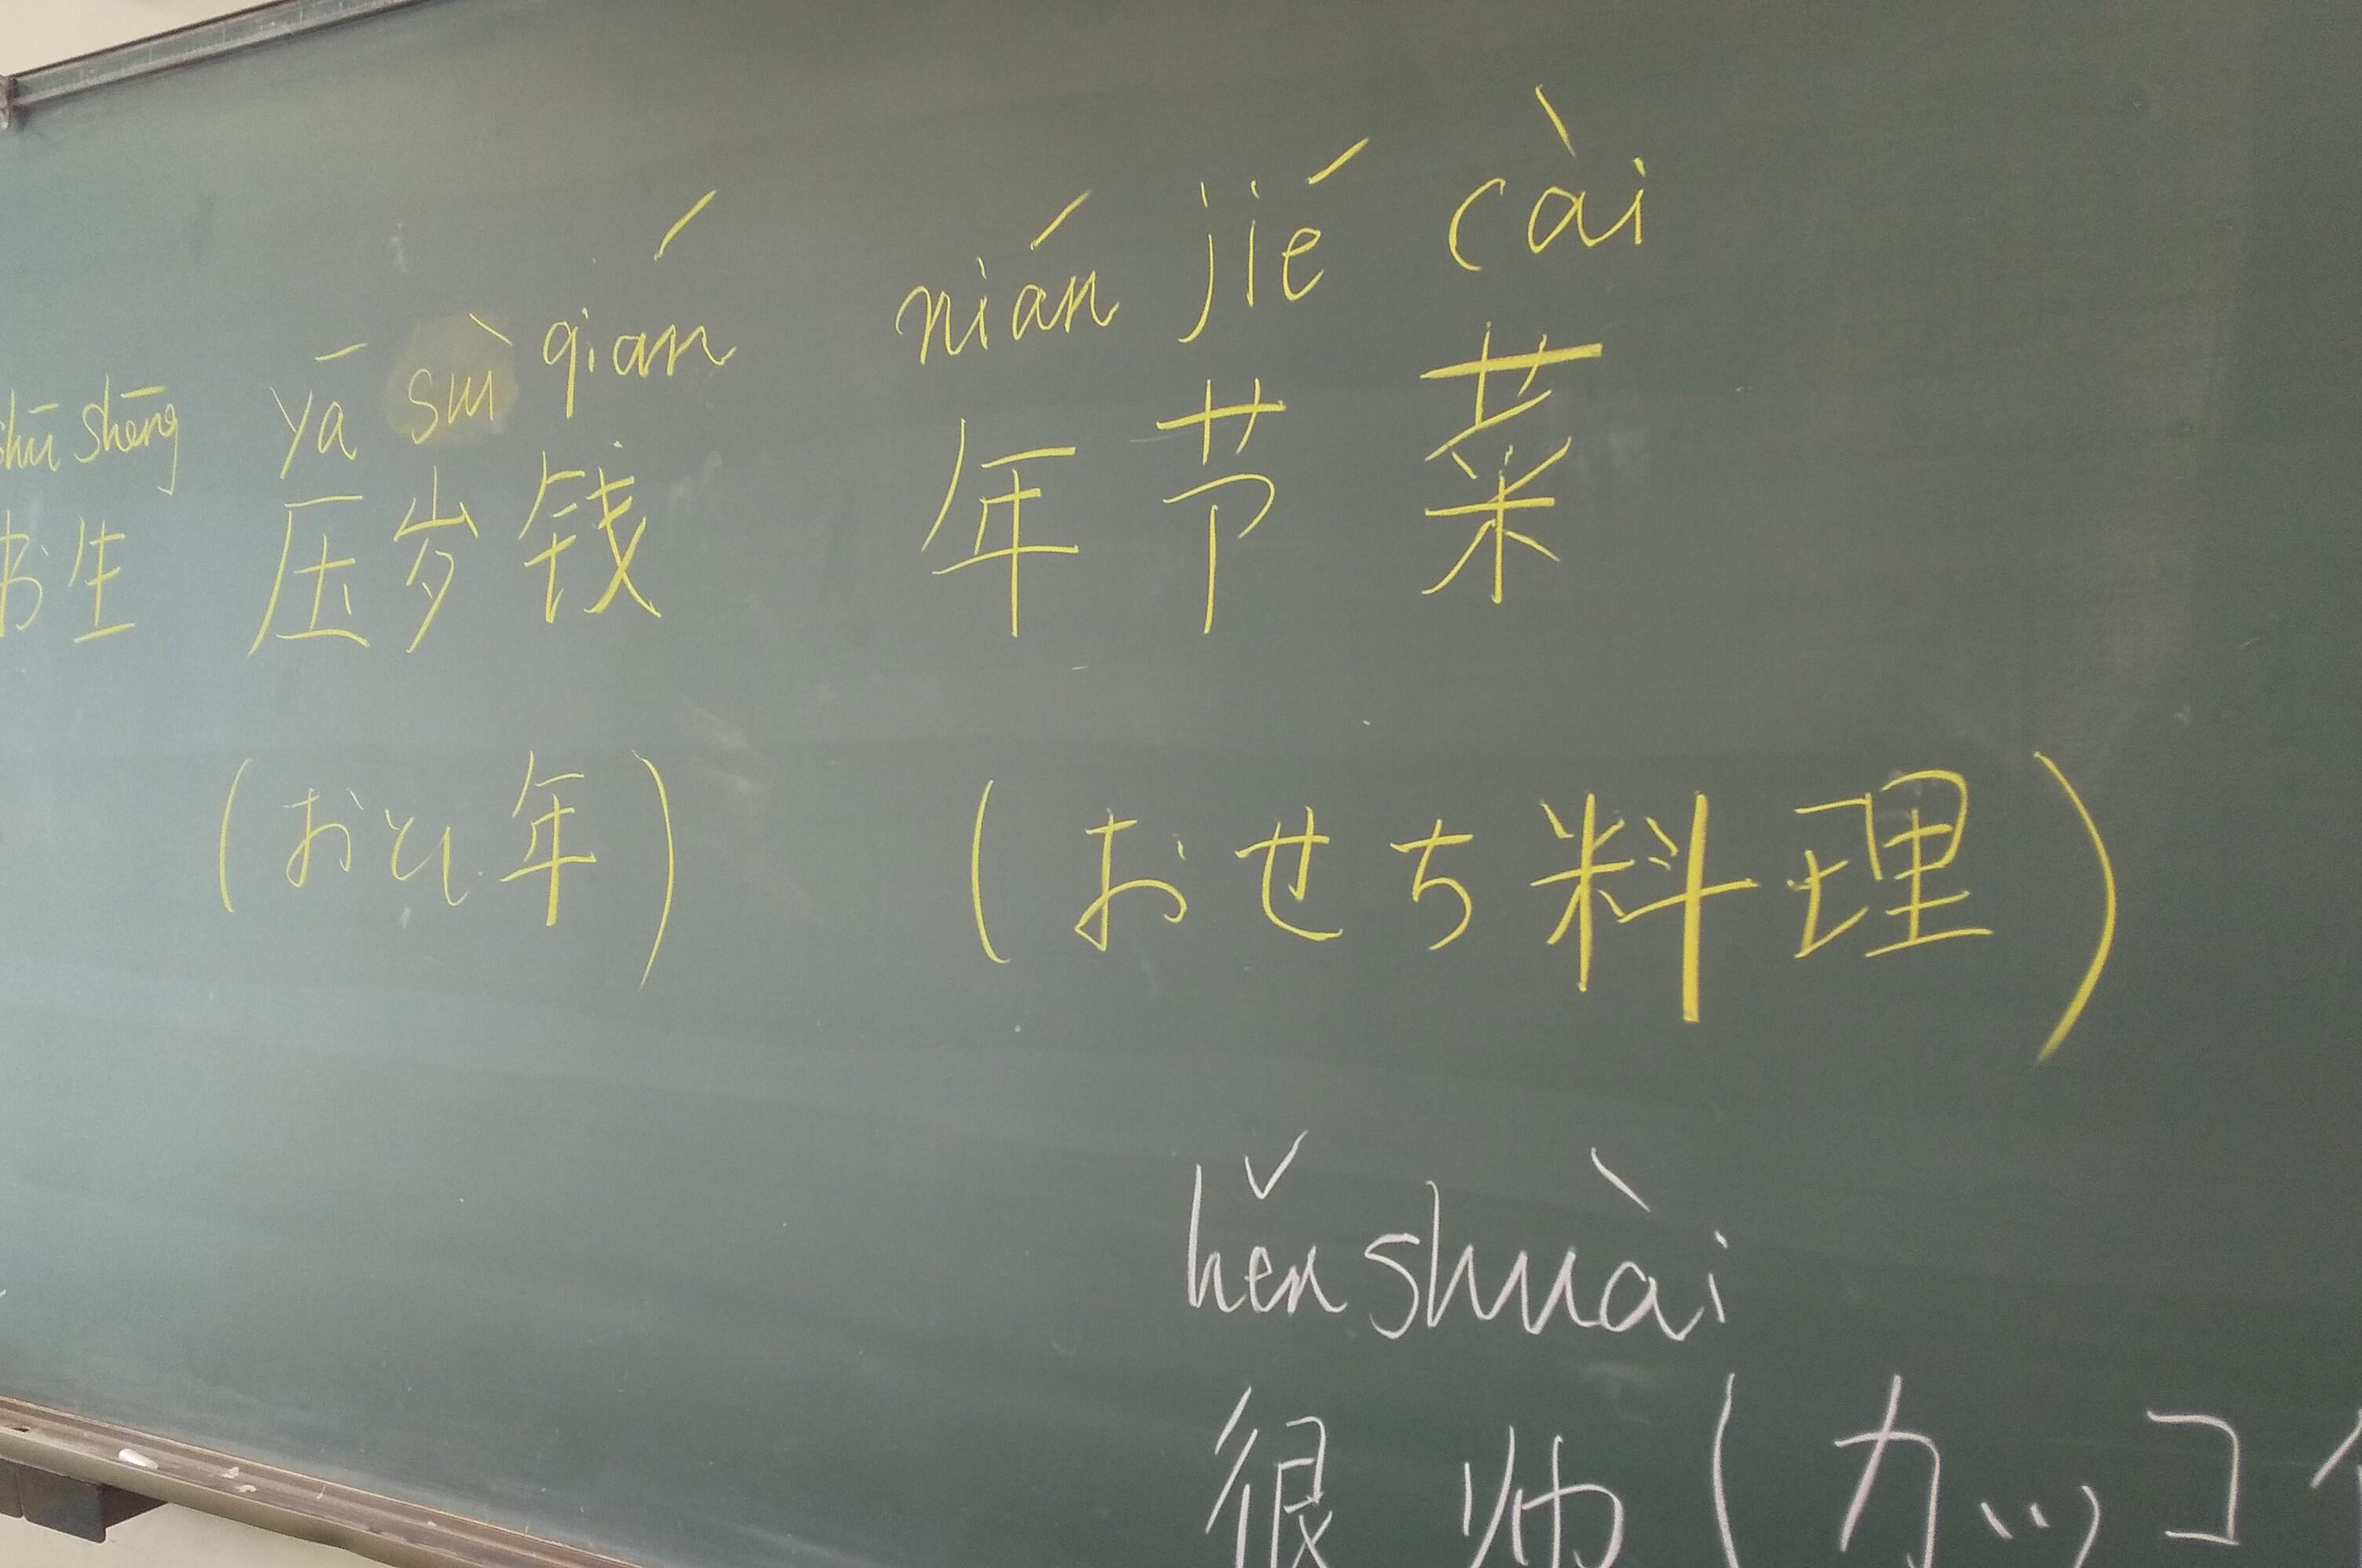 shū shēng yā suì qián nián jié cài
书生 压岁钱 年节菜
(おとし年) (おせち料理)
hěn shuài
很帅(カッコ